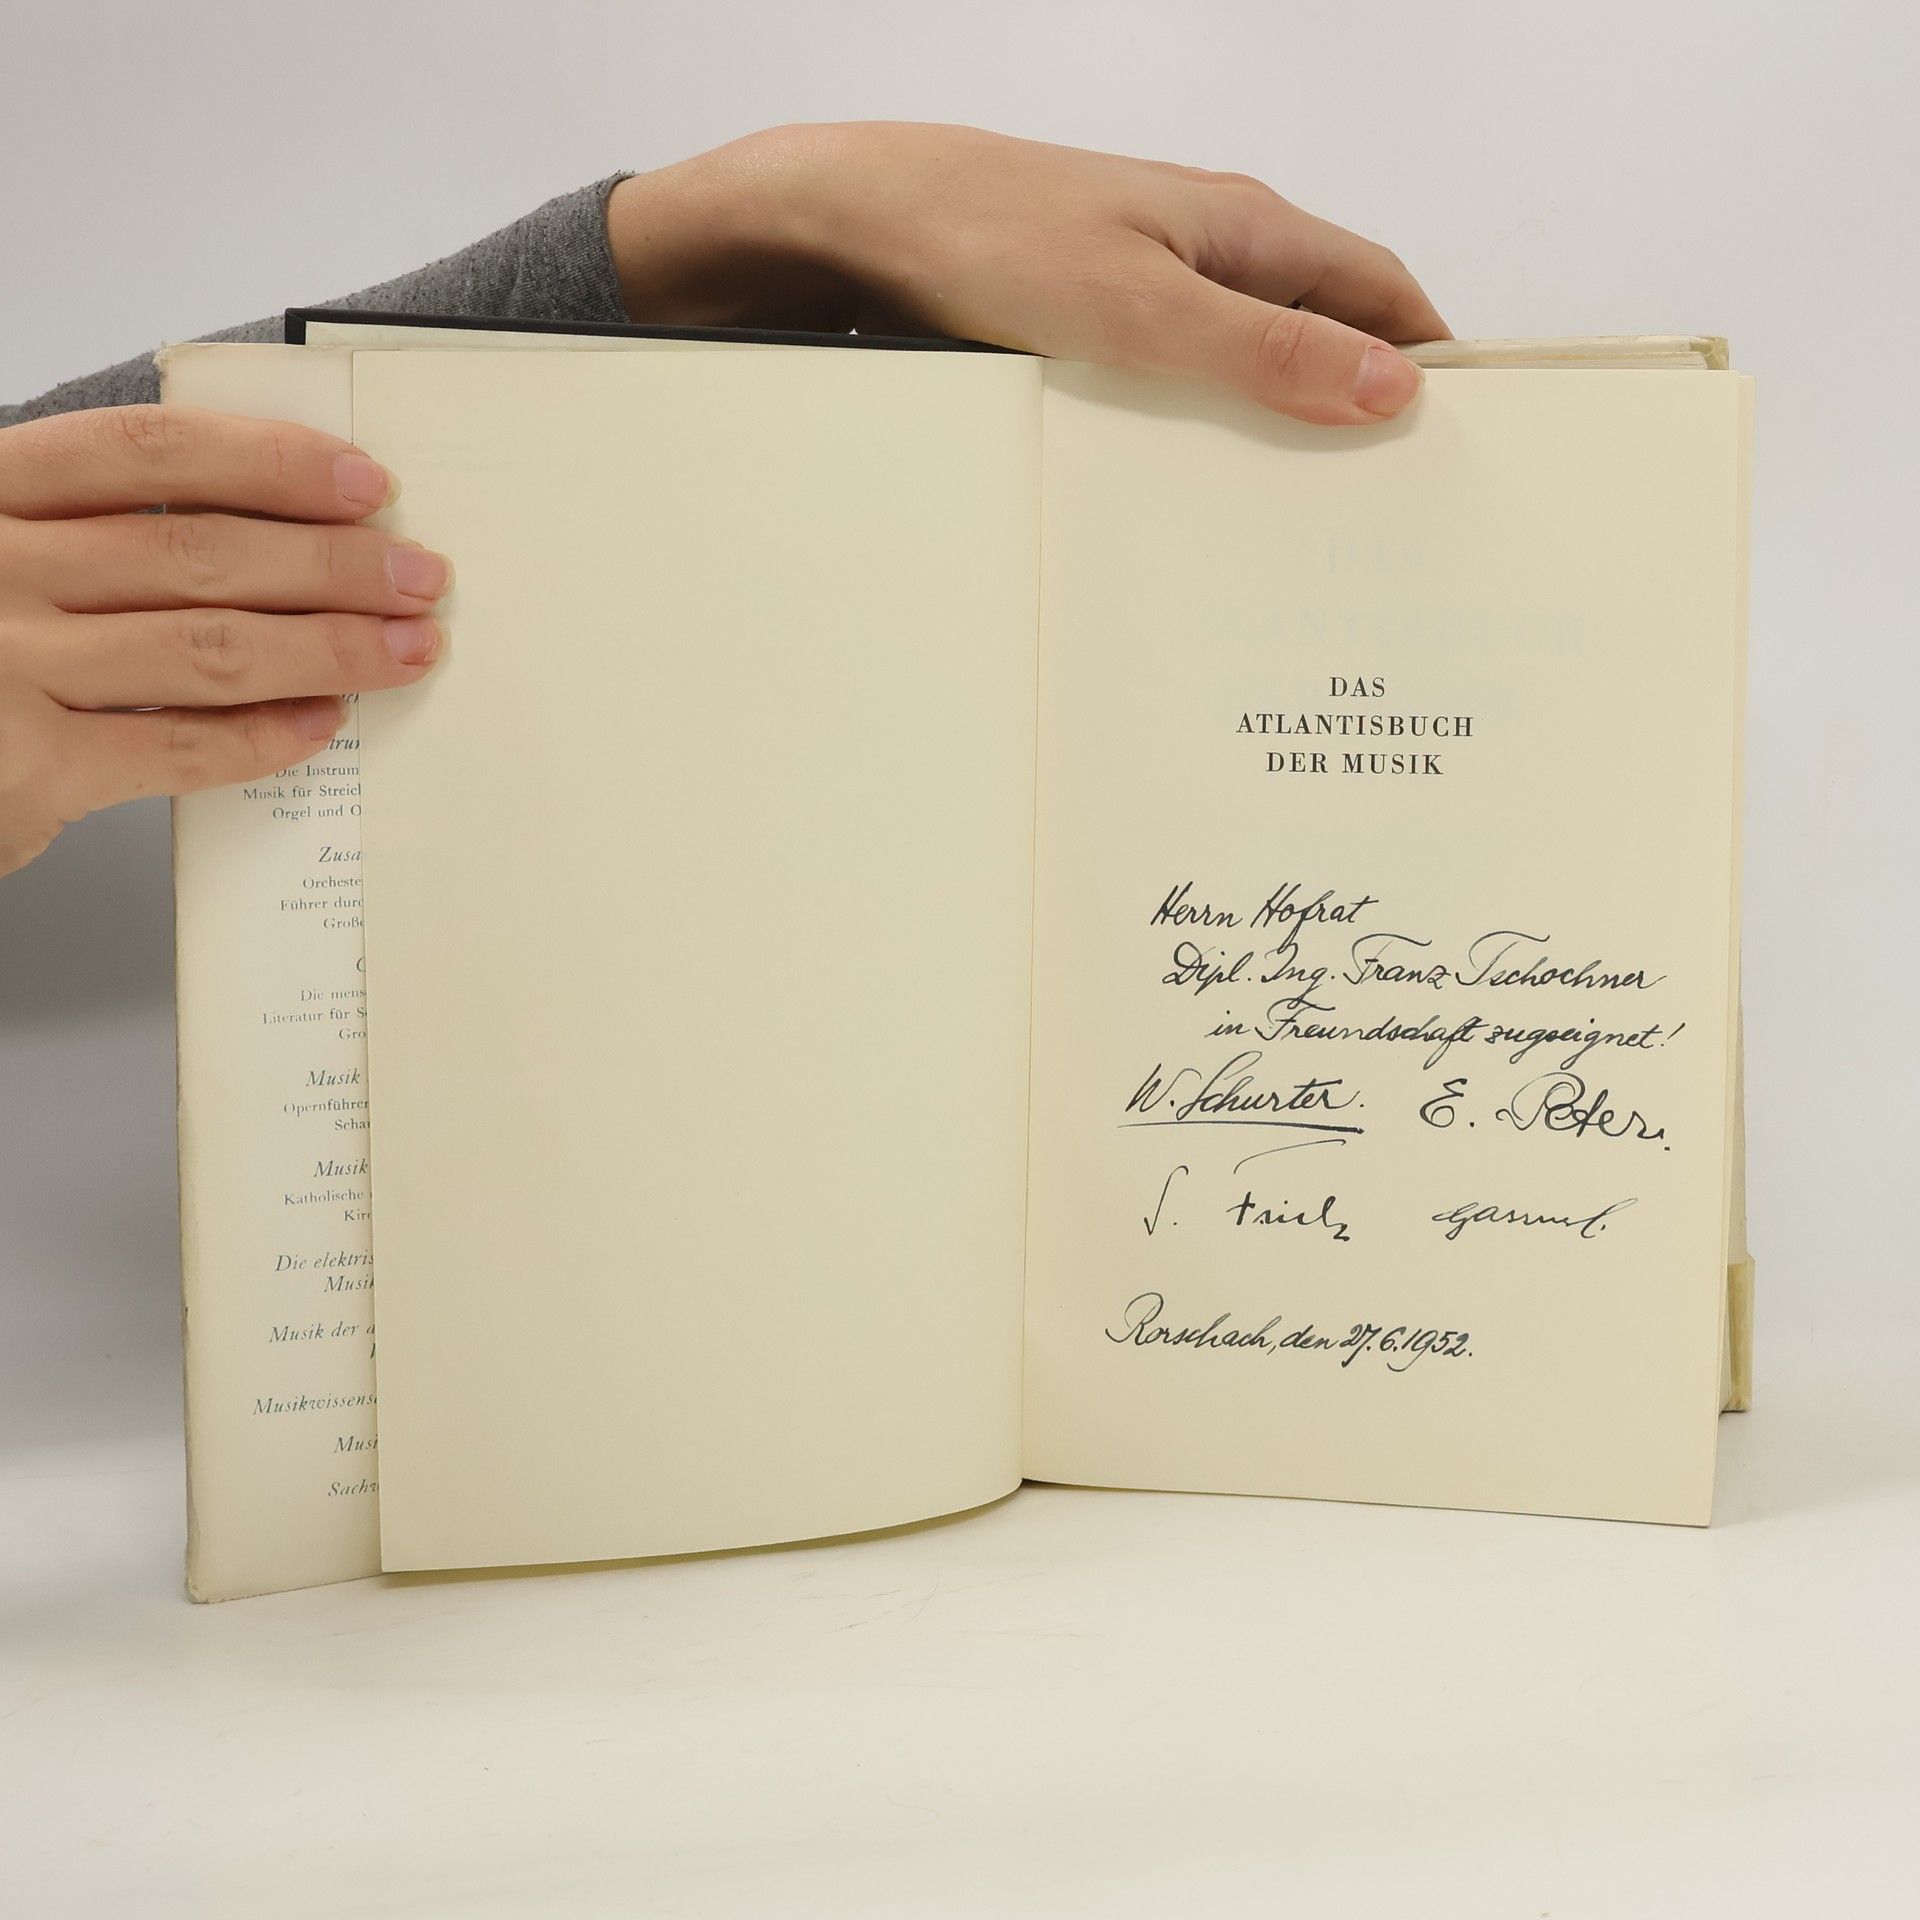 Die Instrum
Musik für Streich
Orgel und O
Zusa
Orcheste
Führer durc
Große
Die mens
Literatur für S
Gro
Musik
Opernführer
Schau
Musik
Katholische
Kirc
Die elektris
Musik
Musik der a
Musikwissensc
Musi
Sachw
DAS
ATLANTISBUCH
DER MUSIK
Herrn Hofrat
Dipl. Ing. Franz Tschochner
in Freundschaft zugeeignet!
W. Schurter. E. Peter.
Rorschach, den 27.6.1952.